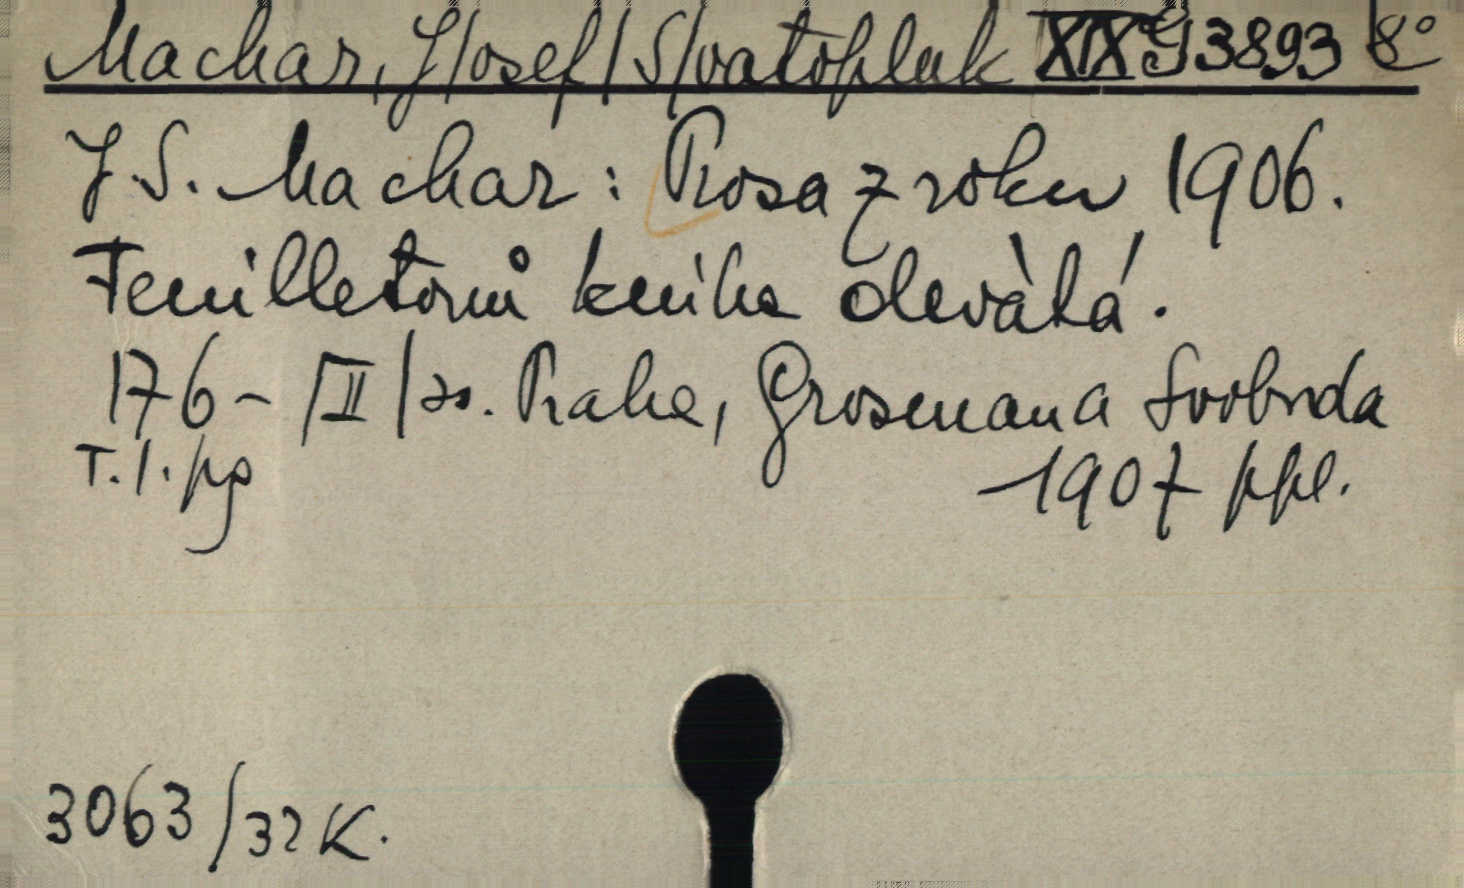 Machar, J/osef/ S/vatopluk XIX G 3893 8°
J. S. Machar: Prosa z roku 1906.
Feuilletonů kniha devátá.
176 - /II/ s. Praha, Grosman a Svoboda
T. l. pg 1907 ppl.
3063/32 K.